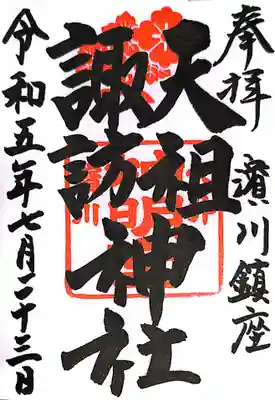 奉拝 濱川鎮座
天祖
諏訪神社
令和五年七月二十三日